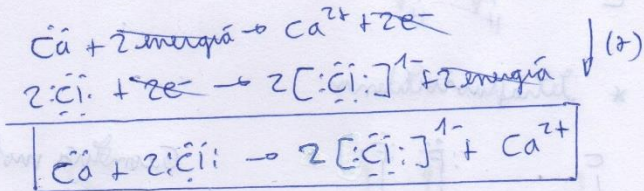 C̈ä + 2 energiá → Ca²⁺ + 2e⁻
2:C̈l̇: + 2e⁻ → 2[:C̈l̈:]¹⁻ + 2 energiá
C̈ä + 2:C̈l̇: → 2[:C̈l̈:]¹⁻ + Ca²⁺